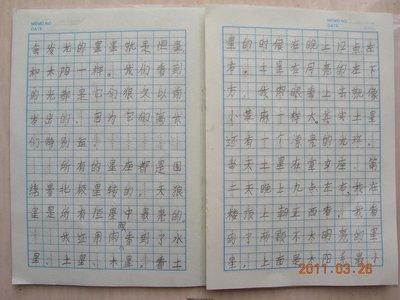 MEMO NO.
DATE
会发光的星星就是恒星,
和太阳一样。我们看到
的光都是它们很久以前
发出的,因为它们离我
们特别远。
所有的星座都是围
绕着北极星转的。天狼
星是所有恒星中最亮的。
我还用肉眼看到了水
星、土星、木星,看土
MEMO NO.
DATE
星的时候在晚上12点左
右,土星在月亮的左下
方,我肉眼看上去就像
小芝麻一样大。其实土星
还有一个漂亮的光环。
春天土星在室女座。第
二天晚上九点左右,我在
楼顶上朝西看,我看
到了两颗不太明亮的星
星,上面是太阳系最
2011.03.26